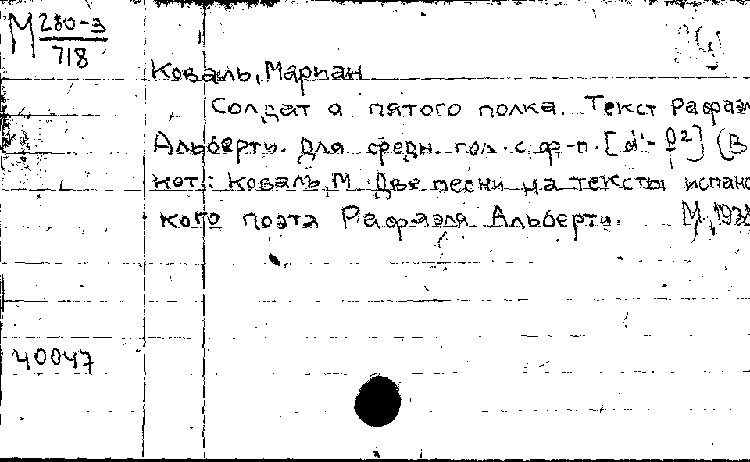 М 280-3
718
Коваль, Мариан
Солдат о пятого полка. Текст Рафаэл
Альберти. Для средн. гол. с ф-п. (В
нот.: Коваль, М. Две песни на тексты испанс
кого поэта Рафаэля Альберти. М.,
40047